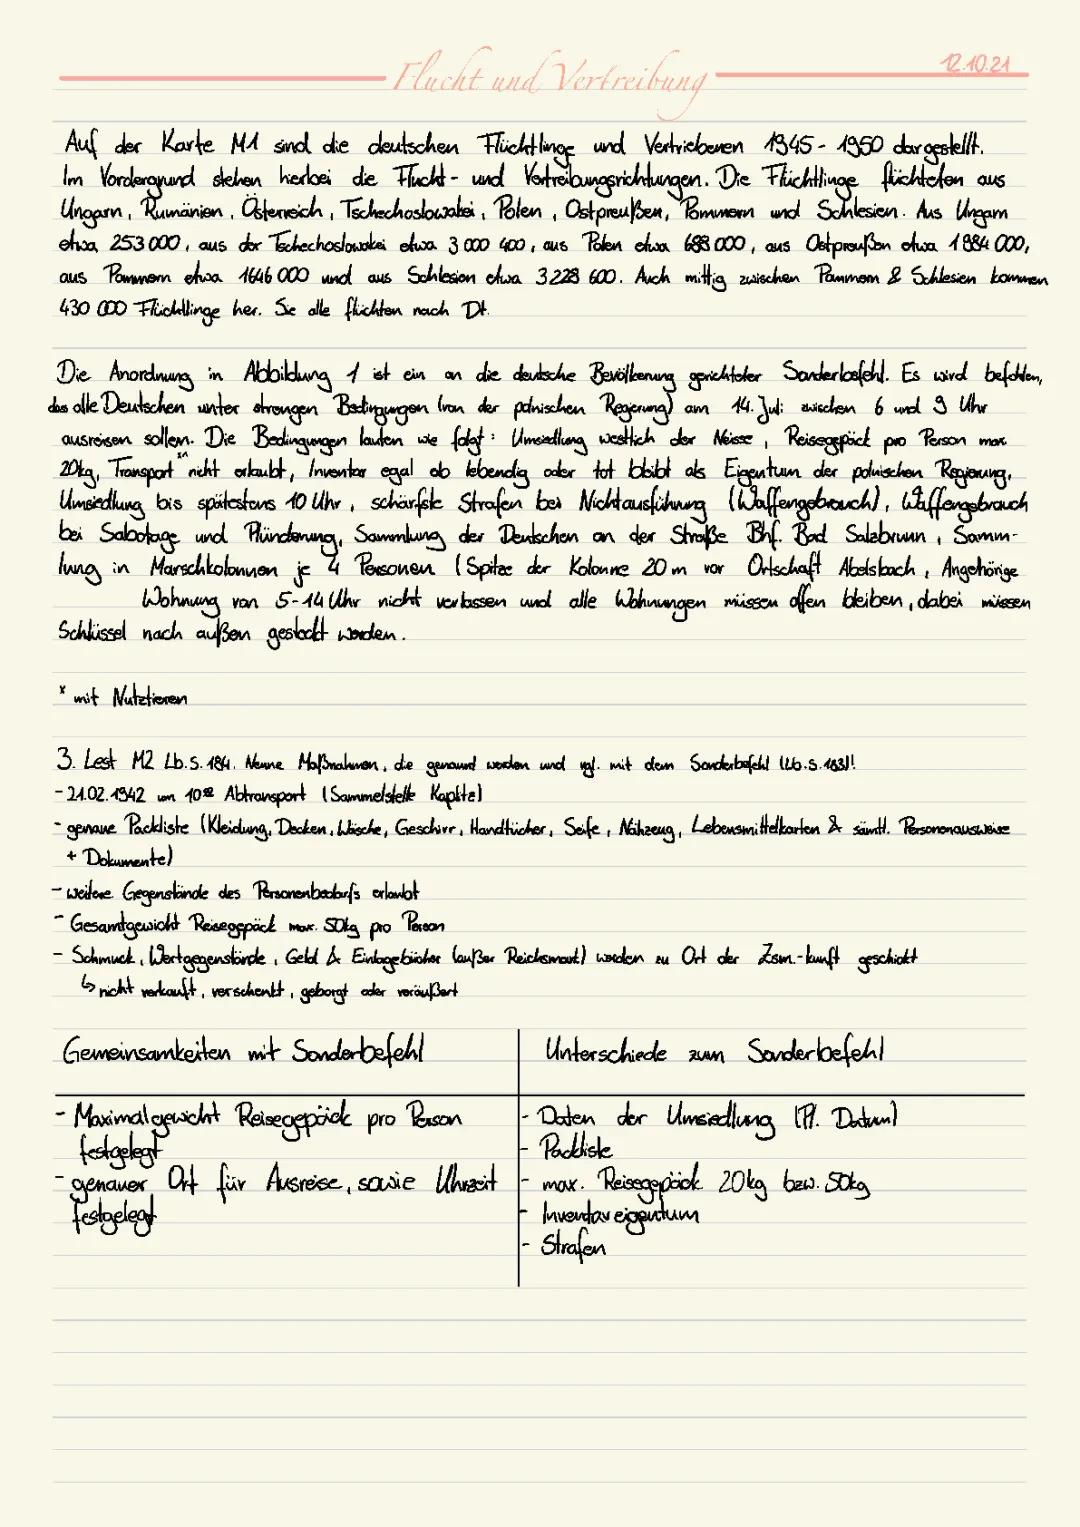 Flucht und Vertreibung
12.10.21
Auf der Karte M1 sind die deutschen Flüchtlinge und Vertriebenen 1945 - 1950 dargestellt.
Im Vordergrund stehen hierbei die Flucht- und Vertreibungsrichtungen. Die Flüchtlinge flüchteten aus
Ungarn, Rumänien, Österreich, Tschechoslowakei, Polen, Ostpreußen, Pommern und Schlesien. Aus Ungarn
etwa 253 000, aus der Tschechoslowakei etwa 3 000 400, aus Polen etwa 688 000, aus Ostpreußen etwa 1 984 000,
aus Pommern etwa 1646 000 und aus Schlesien etwa 3 228 600. Auch mittig zwischen Pommern & Schlesien kommen
430 000 Flüchtlinge her. Sie alle flüchten nach Dt.
Die Anordnung in Abbildung 1 ist ein an die deutsche Bevölkerung gerichteter Sonderbefehl. Es wird befohlen,
das alle Deutschen unter strengen Bedingungen (von der polnischen Regierung) am 14. Juli zwischen 6 und 9 Uhr
ausreisen sollen. Die Bedingungen lauten wie folgt: Umsiedlung westlich der Neisse, Reisegepäck pro Person max.
20kg, Transport nicht erlaubt, Inventar egal ob lebendig oder tot bleibt als Eigentum der polnischen Regierung,
Umsiedlung bis spätestens 10 Uhr, schärfste Strafen bei Nichtausführung (Waffengebrauch), Waffengebrauch
bei Sabotage und Plünderung, Sammlung der Deutschen an der Straße Bhf. Bad Salzbrunn, Samm-
lung in Marschkolonnen je 4 Personen (Spitze der Kolonne 20 m vor Ortschaft Abelsbach, Angehörige
Wohnung von 5-14 Uhr nicht verlassen und alle Wohnungen müssen offen bleiben, dabei müssen
Schlüssel nach außen gesteckt werden.
x mit Nutztieren
3. Lest M2 Lb. S. 184. Nenne Maßnahmen, die genannt werden und vgl. mit dem Sonderbefehl (Lb. S. 183)!
- 21.02.1942 um 10⁰⁰ Abtransport (Sammelstelle Kaplitz)
- genaue Packliste (Kleidung, Decken, Wäsche, Geschirr, Handtücher, Seife, Nähzeug, Lebensmittelkarten & sämtl. Personenausweise
+ Dokumente)
- weitere Gegenstände des Personenbedarfs erlaubt
- Gesamtgewicht Reisegepäck max. 50kg pro Person
- Schmuck, Wertgegenstände, Geld & Einlagebücher (außer Reichsmark) werden zu Ort der Zsm.-kunft geschickt
↳ nicht verkauft, verschenkt, geborgt oder veräußert
Gemeinsamkeiten mit Sonderbefehl
- Maximalgewicht Reisegepäck pro Person
festgelegt
- genauer Ort für Ausreise, sowie Uhrzeit
festgelegt
Unterschiede zum Sonderbefehl
- Daten der Umsiedlung (Pl. Datum)
- Packliste
- max. Reisegepäck 20kg bzw. 50kg
- Inventareigentum
- Strafen